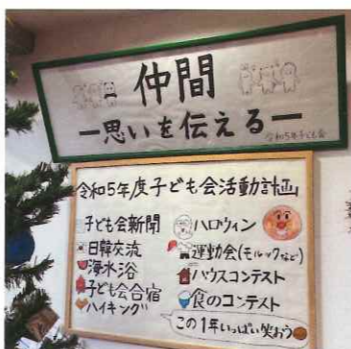 仲間
ー思いを伝えるー
令和5年子ども会
令和5年度子ども会活動計画
子ども会新聞
日韓交流
海水浴
子ども会合宿
ハイキング
ハロウィン
運動会(モルックなど)
ハウスコンテスト
食のコンテスト
この1年いっぱい笑おう